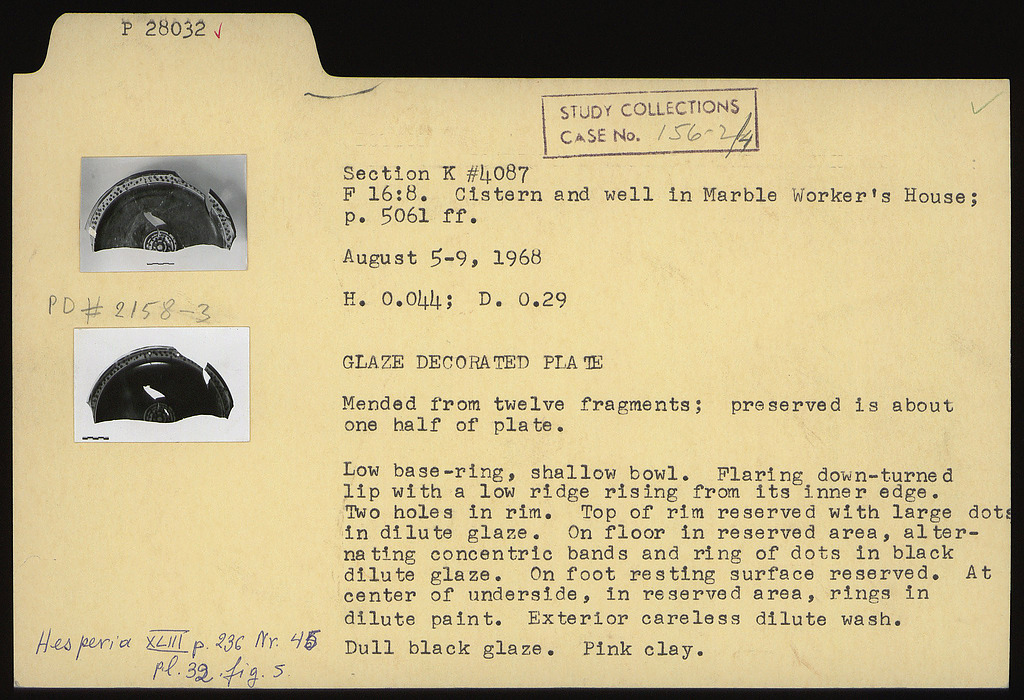 P 28032
STUDY COLLECTIONS
CASE No. 156-2/4
Section K #4087
F 16:8.  Cistern and well in Marble Worker's House;
p. 5061 ff.
August 5-9, 1968
H. 0.044;  D. 0.29
PD# 2158-3
GLAZE DECORATED PLATE
Mended from twelve fragments;  preserved is about
one half of plate.
Low base-ring, shallow bowl.  Flaring down-turned
lip with a low ridge rising from its inner edge.
Two holes in rim.  Top of rim reserved with large dots
in dilute glaze.  On floor in reserved area, alter-
nating concentric bands and ring of dots in black
dilute glaze.  On foot resting surface reserved.  At
center of underside, in reserved area, rings in
dilute paint.  Exterior careless dilute wash.
Dull black glaze.  Pink clay.
Hesperia XLIII p. 236 Nr. 45
pl. 32 fig. 5